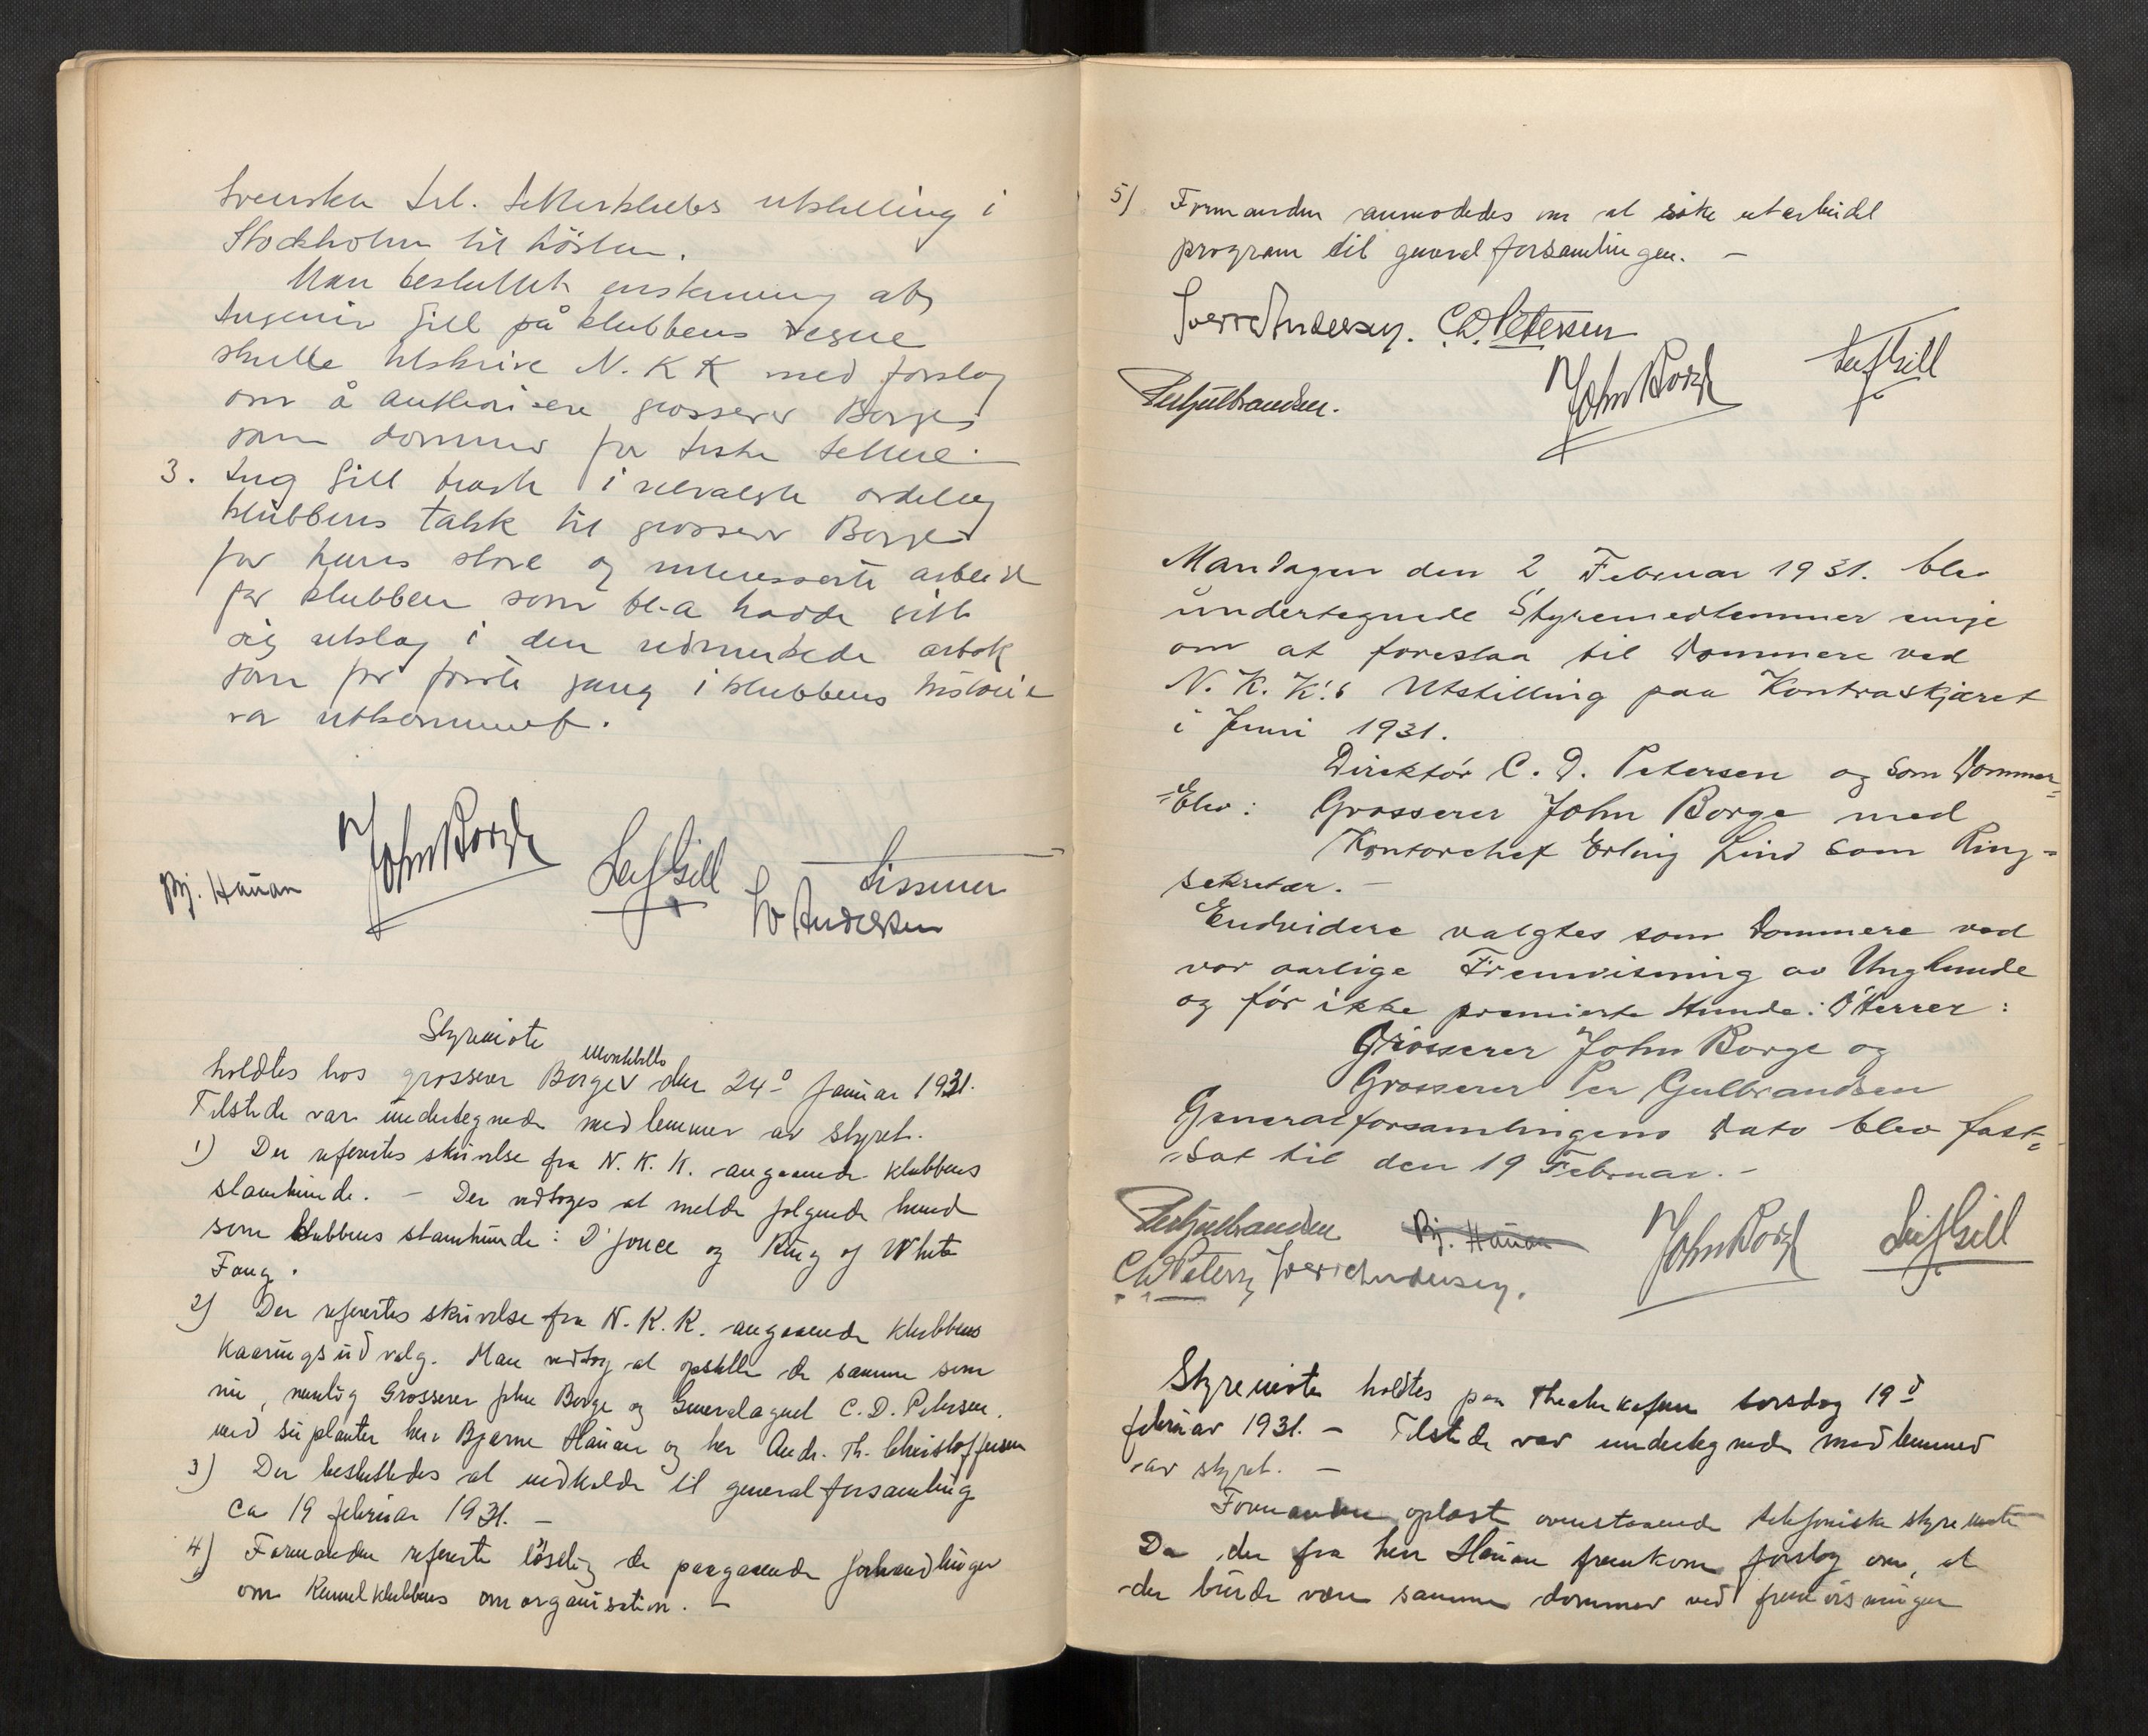 Svenska Irl. Setterklubs utstilling i
Stockholm til hösten.
Man besluttet enstemmig at
Ingeniør Gill på klubbens vegne
skulle tilskrive N. K K med forslag
om å authorisere grosserer Borge
som dommer for Irske Settere.
3. Ing Gill bragte i velvalgte ordelag
klubbens takk til grosserer Borge
for hans store og interesserte arbeid
for klubben som bl-a hadde gitt
sig utslag i den utmerkede årbok
som for første gang i klubbens historie
var utkommet.
Bj. Hauan John Borge Leif Gill Sissener
Sv Andersen
Styremøte
holdtes hos grosserer Borge Montebello den 24º Januar 1931.
Tilstede var undertegnede medlemmer av styret.
1) Der refertes skrivelse fra N. K. K. angaaende klubbens
stamhunde. – Der vedtoges at melde følgende hund
som klubbens stamhunde: D'Jonce og King of White
Fang.
2) Der refertes skrivelse fra N. K. K. angaaende klubbens
Kaaringsudvalg. Man vedtog at opstille de samme som
nu, nemlig Grosserer John Borge og Generalagent C. D. Petersen.
med suplanter herr Bjarne Hauan og herr Andr. Th. Christoffersen
3) Der besluttedes at indkalde til generalforsamling
ca 19 februar 1931. –
4) Formanden refererte löselig de paagaaende forhandlinger
om Kennelklubbens omorganisation. –
5) Formanden anmodedes om at søke utarbeidet
program til generalforsamlingen. –
Sverre Andersen. C.D. Petersen
Per Gulbrandsen. John Borge Leif Gill
Mandagen den 2 Februar 1931. blev
undertegnede Styremedlemmer enige
om at foreslaa til Dommere ved
N. K. K's Utstilling paa Kontraskjæret
i Juni 1931.
Direktør C. D. Petersen og som Dommer-
Elev: Grosserer John Borge med
Kontorchef Erling Lind som Ring-
sekretær. –
Endvidere valgtes som Dommere ved
vor aarlige Fremvisning av Unghunde
og før ikke premierte Hunde: D'Herrer:
Grosserer John Borge og
Grosserer Per Gulbrandsen
Generalforsamlingens Dato blev fast-
sat til den 19 Februar. –
Per Gulbrandsen Bj. Hauan John Borge Leif Gill
C.D. Petersen Sverre Andersen.
Styremøte holdtes paa Theaterkafeen torsdag 19d
februar 1931. – Tilstede var undertegnede medlemmer
av styret. –
Formanden oplæst ovenstaaende telefoniske styremøte
Da der fra herr Hauan fremkom forslag om, at
der burde være samme dommer ved fremvisningen